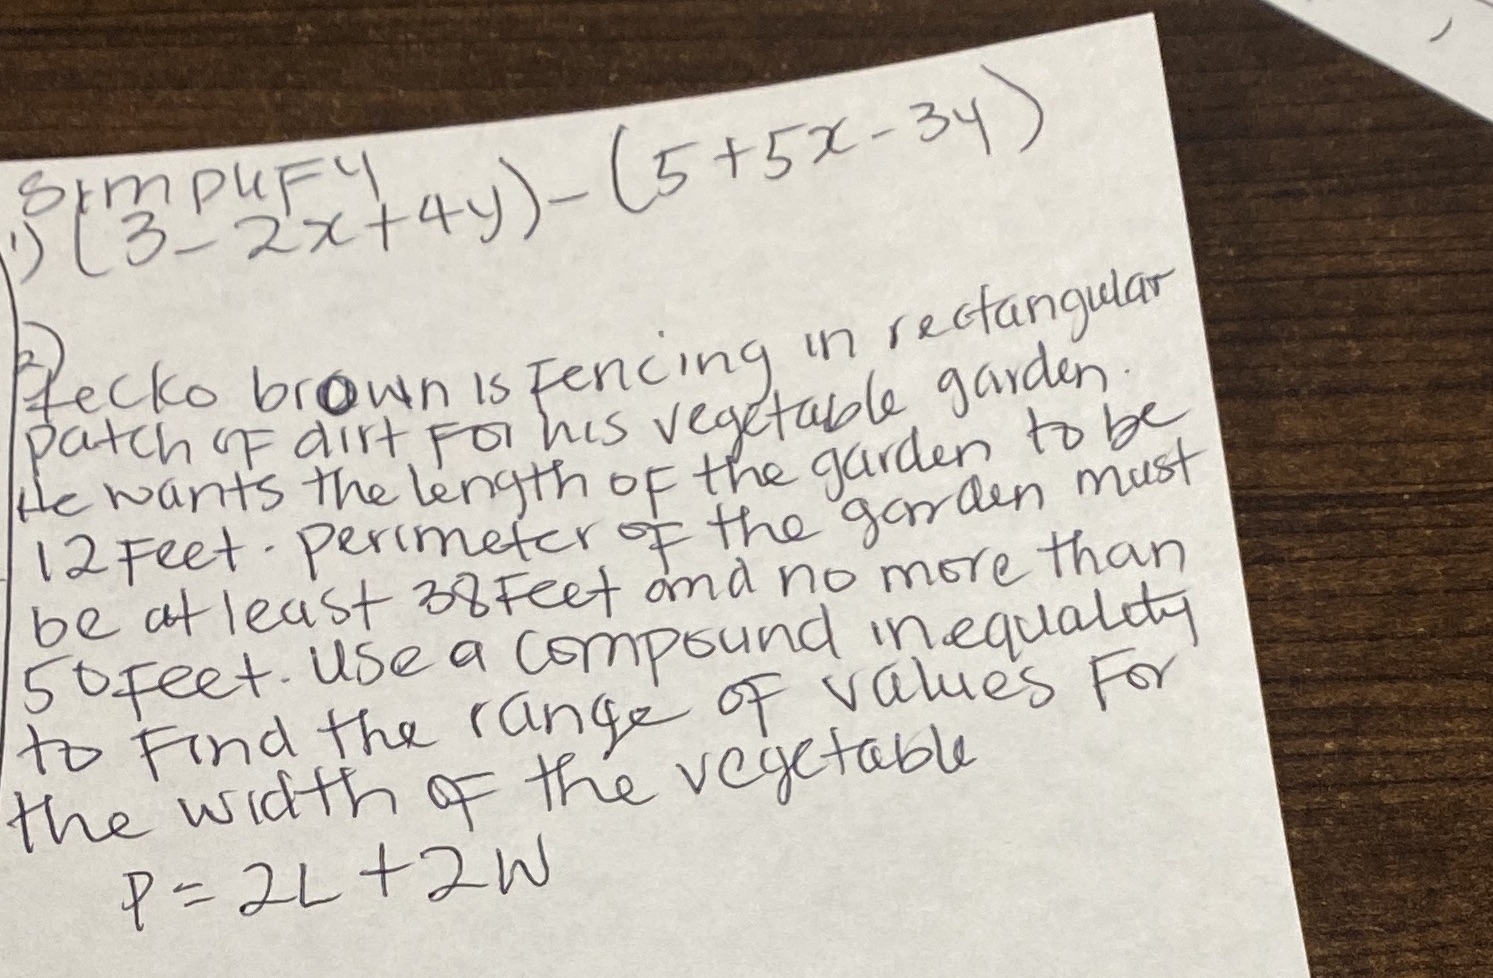 SImpLIFY
1) (3-2x+4y)-(5+5x-3y)
2)
Tecko brown is Fencing in rectangular
patch of dirt For his vegetable garden.
He wants the length of the garden to be
12 Feet. perimeter of the garden must
be at least 38 Feet and no more than
50 Feet. Use a compound inequality
to Find the range of values For
the width of the vegetable
P = 2L + 2W